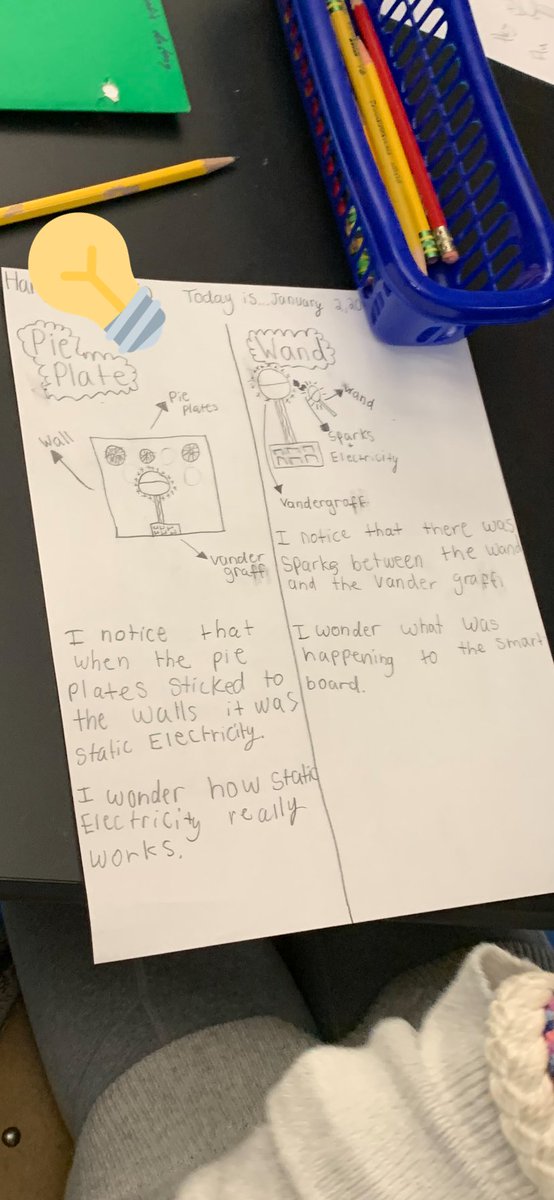 Today is... January 2, 20
Pie
Plate
Pie
Plates
Wall
vander
graff
I notice that
when the pie
plates sticked to
the walls it was
static Electricity.
I wonder how static
Electricity really
works.
Wand
wand
Sparks
Electricity
Vandergraff
I notice that there was
sparks between the wand
and the vander graff
I wonder what was
happening to the smart
board.